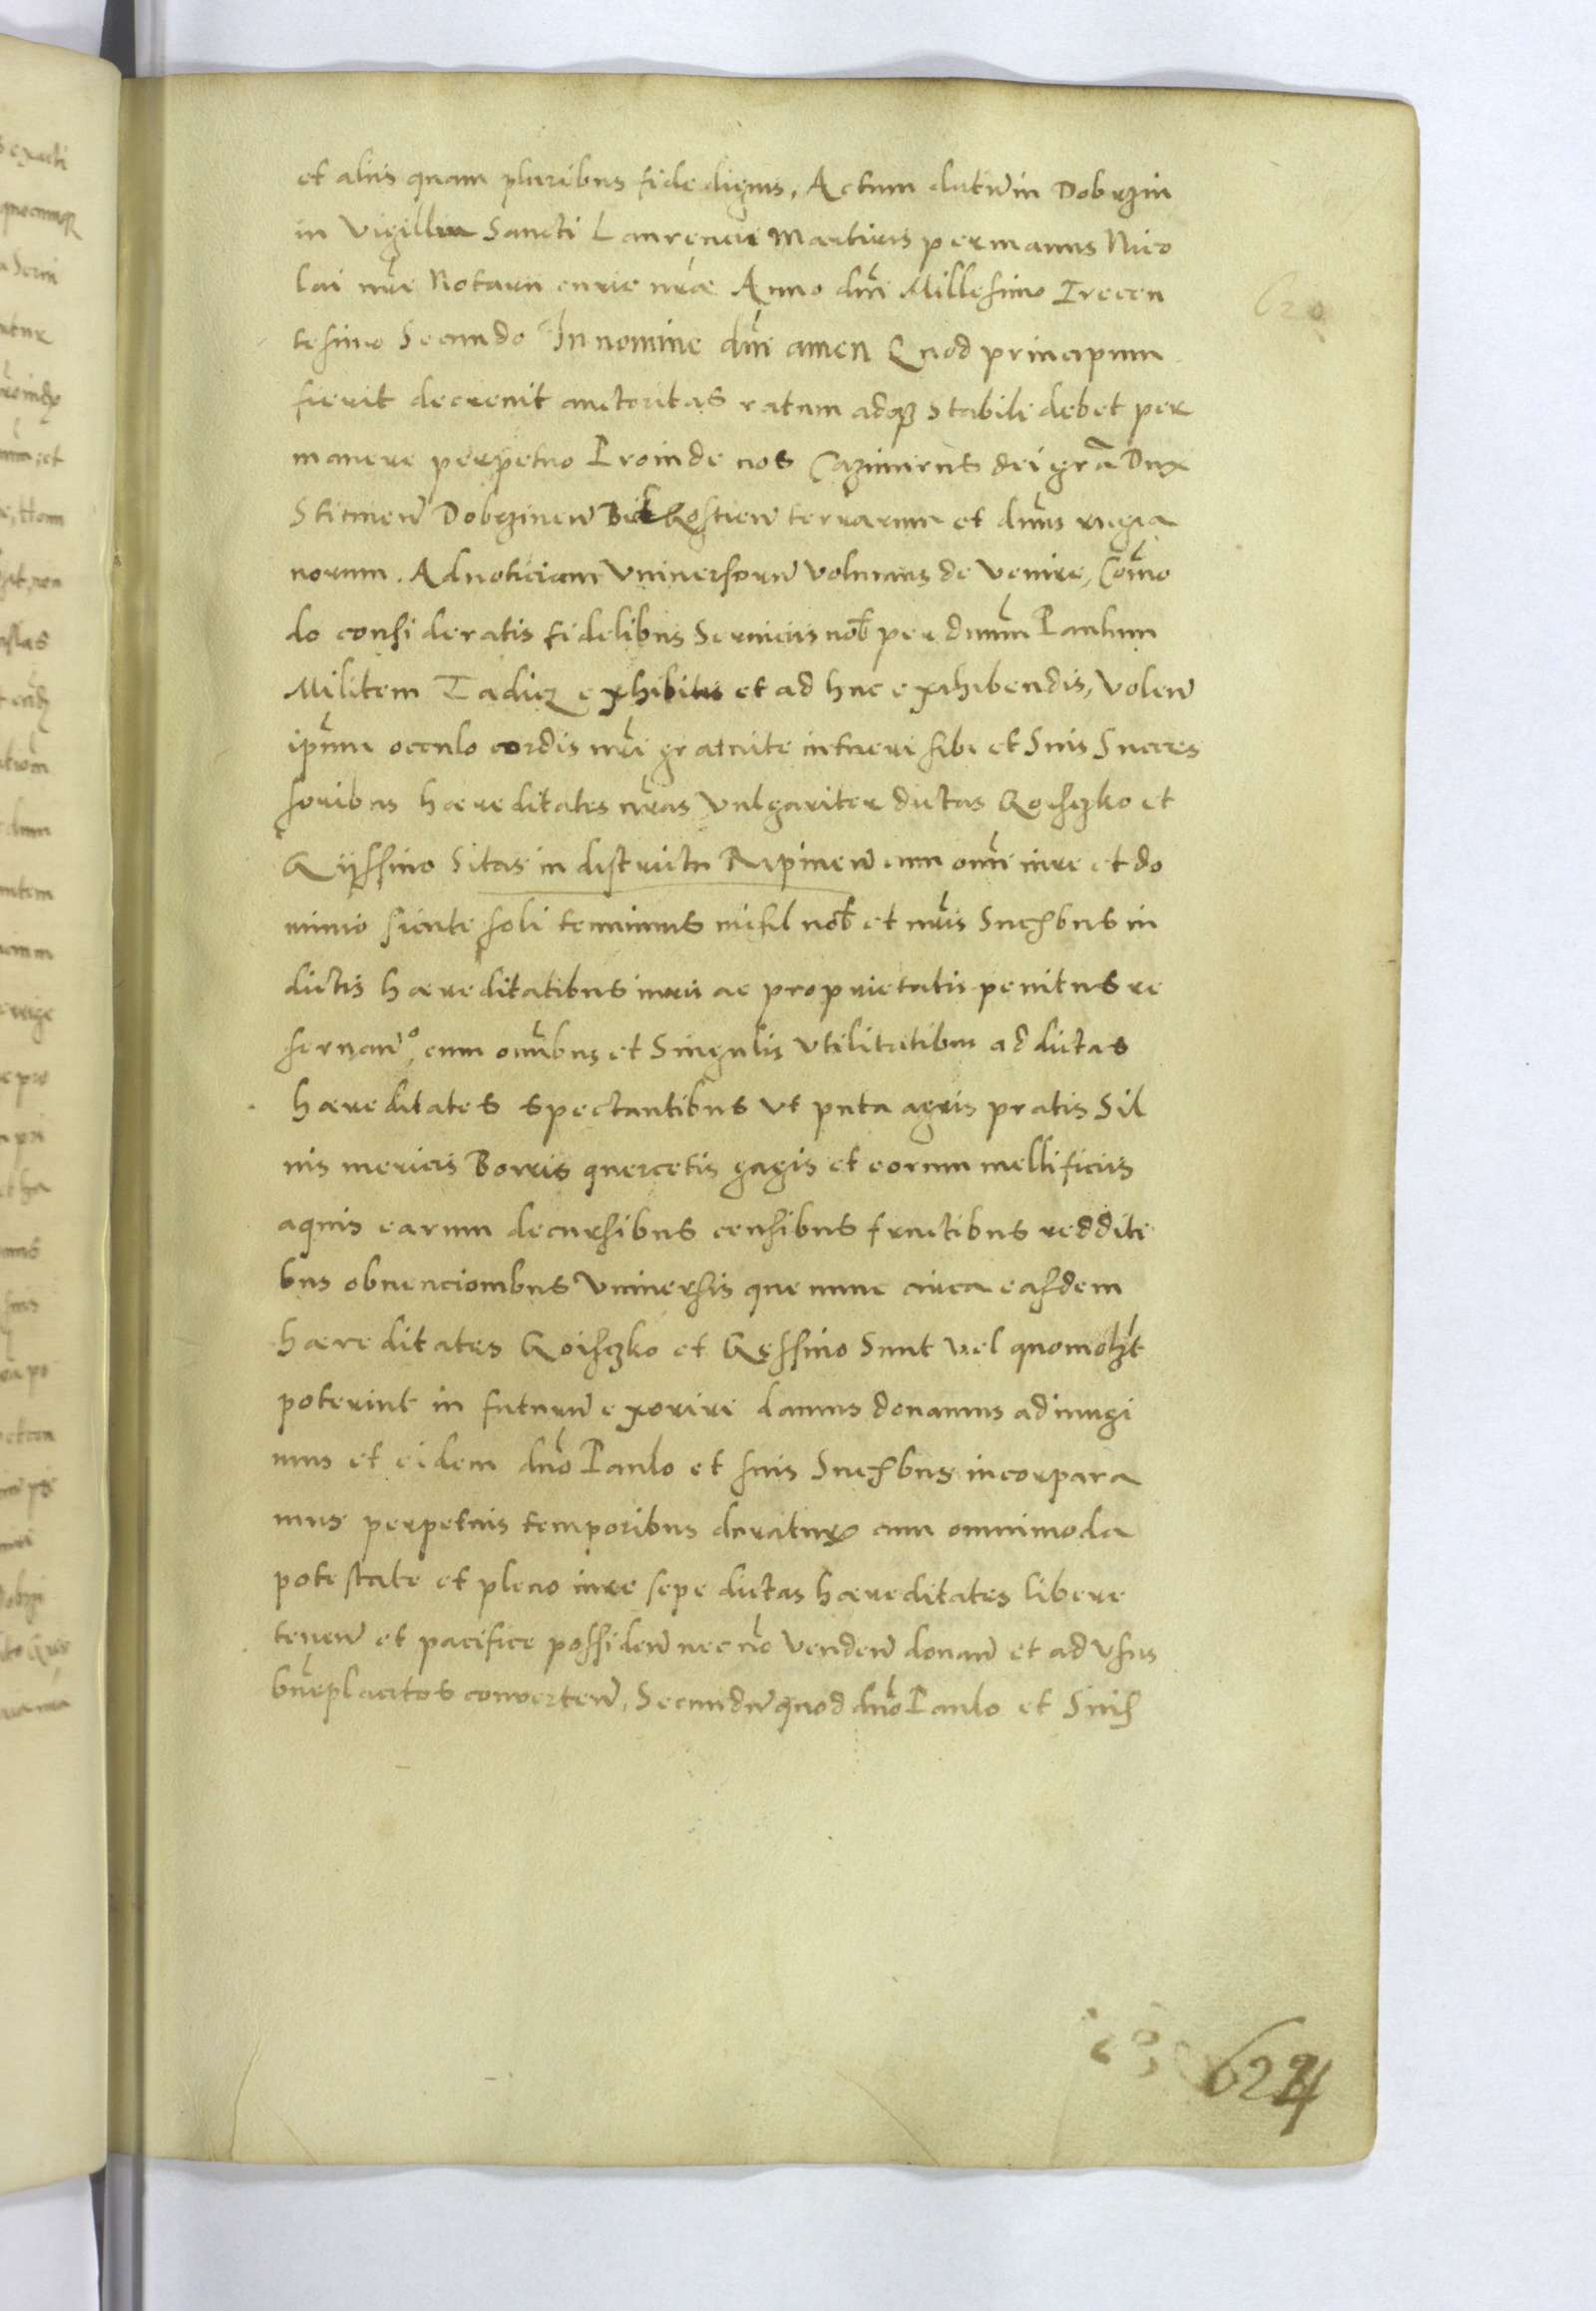 et aliis quam pluribus fide dignis, Actum datũ in Dobrzin
in vigillia Sancti Laurencii Martiris per manus Nico
lai nr̃i Notarii curie nr̃ae Anno dñi Millesimo Trecen
620
tesimo Secundo In nomine dñi amen Quod principum
fierit decrevit auctoritas ratum adqȝ stabile debet per
manere perpetuo Proinde nos Cazimirus dei grã Dux
Stitinen̄ Dobrzinen̄ Bid Gostien̄ terrarum et dñus rugia
norum. Ad noticiam vniversorũ volumus devenire, Com̃o
do consideratis fidelibus Serviciis nob̃ per dnum̃ Paulum
Militem Iadiq exhibitis et ad huc exhibendis, volen̄
ip̃um occulo cordis nr̃i gratuite intueri sibi et Suis Succes
soribus haereditates nr̃as vulgariter dictas Goisczko et
Gijssino Sitas in districtu Ripinen̄ cum om̃i iure et do
minio sicute soli tenuimus nichil nob̃ et nr̃is Sucꝭbus in
dictis haereditatibus iuris ac proprietatis penitus re
servan̄ᵒ, cum om̃bus et Singulis vtilitatibus ad dictas
haereditates spectantibus vt puta agris pratis Sil
vis mericis Borris quercetis gagis et eorum mellificiis
aquis earum decursibus censibus fructibus reddite
bus obvencionibus vniversis que nunc circa easdem
haereditates Goisczko et Gęssino Sunt vel quomolȝt
poterint in futurũ exoriri damus donamus adiungi
mus et eidem dño Paulo et suis Sucꝭbus incorpara
mus perpetuis temporibus duraturo cum omnimoda
potestate et pleno iure sepe dictas haereditates libere
tenen̄ et pacifice possiden̄ nec nõ venden̄ donan̄ et ad vsus
bñeplacitos converten̄, Secundũ quod dño Paulo et Suis
624